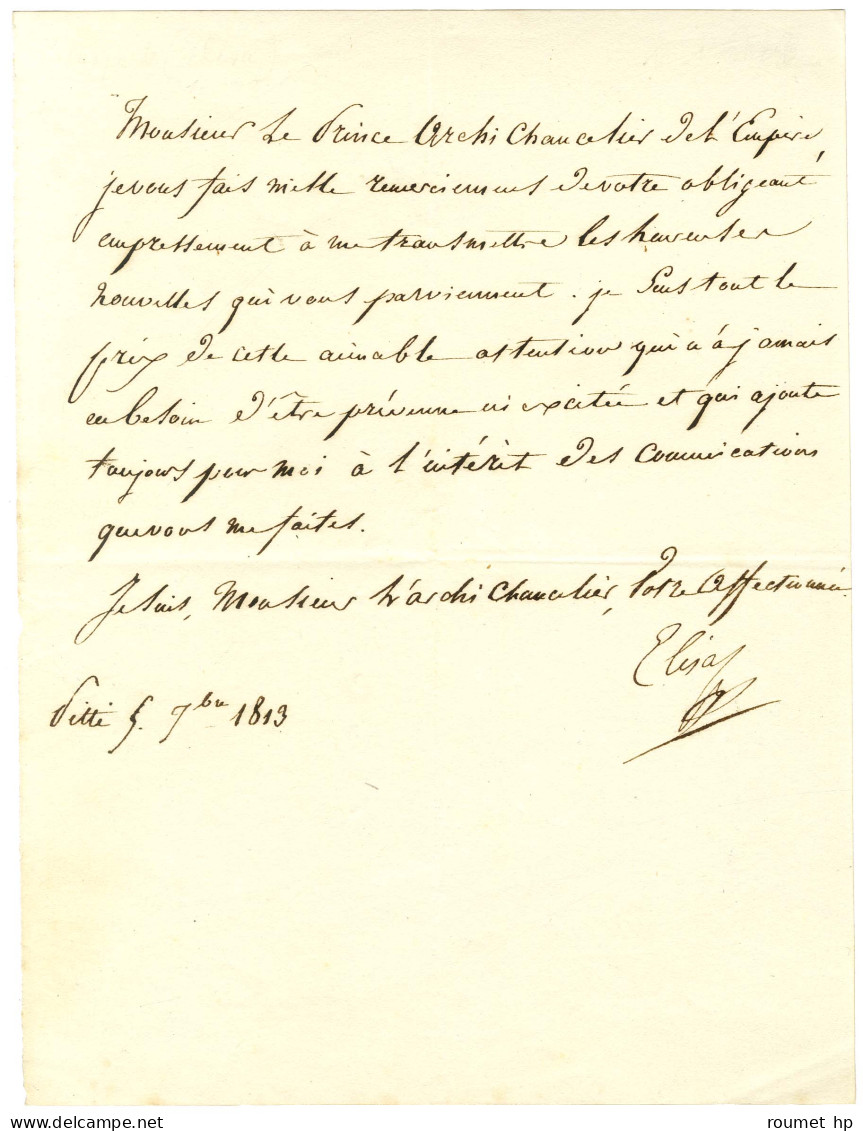 Monsieur Le Prince Archi Chancelier de l'Empire,
je vous fais mille remerciemens de votre obligeant
empressement à me transmettre les heureuses
nouvelles qui vous parviennent. je sens tout le
prix de cette aimable attention qui n'a jamais
eu besoin d'être prévenue ni excitée et qui ajoute
toujours pour moi à l'intérêt des communications
que vous me faites.
Je suis, Monsieur L'archi Chancelier, Votre Affectionnée.
Elisa
Pitti 5. 7bre 1813
roumet hp